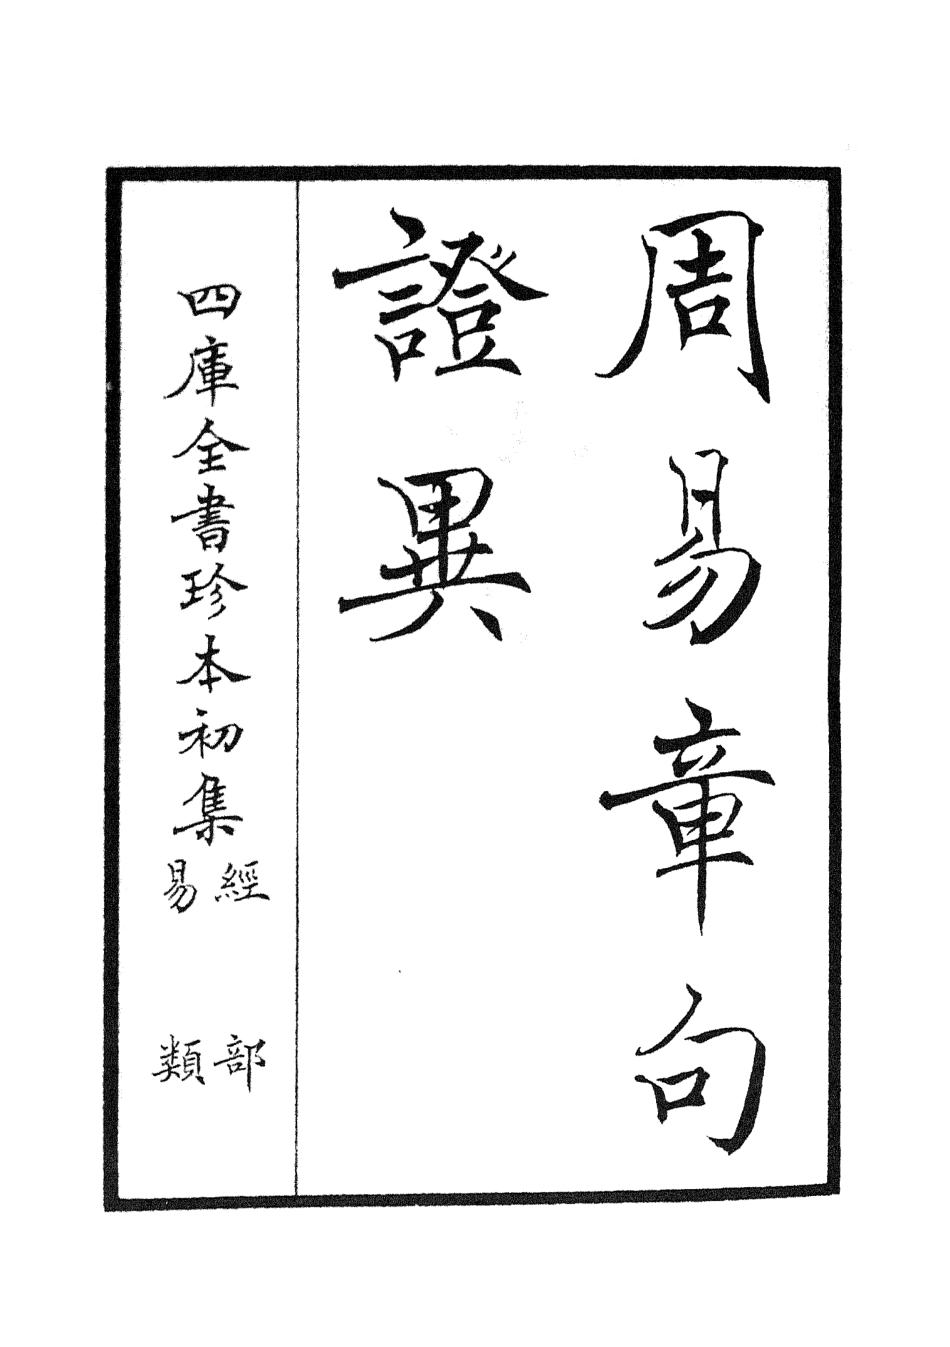 周易章句
證異
四庫全書珍本初集
經部
易類